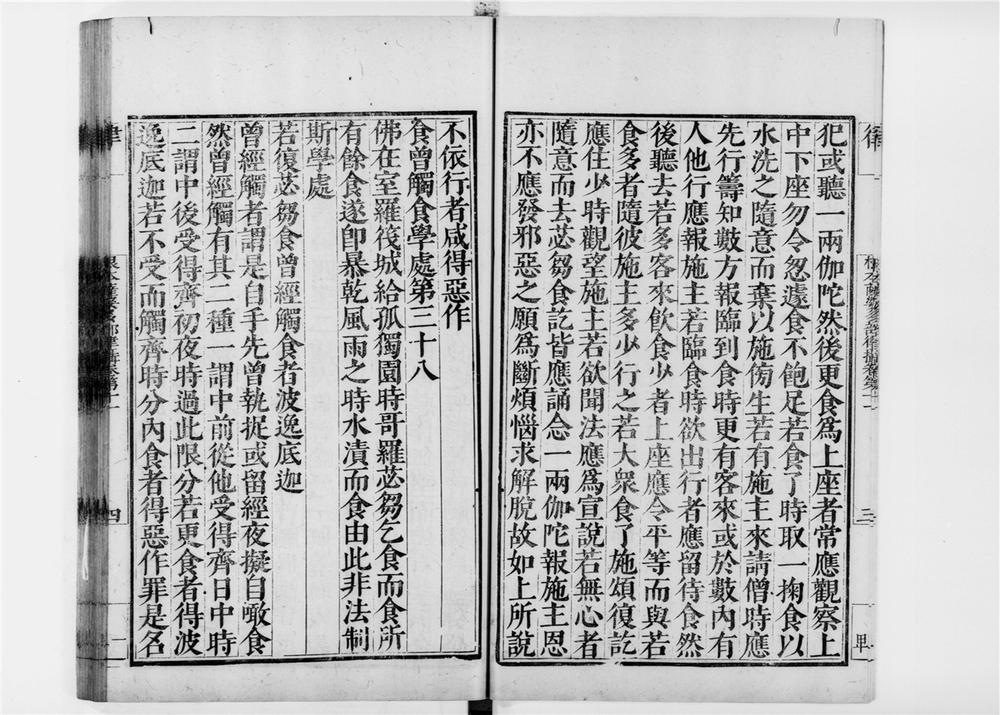 犯或聽一兩伽陀然後更食爲上座者常應觀察上
中下座勿令怱遽食不飽足若食了時取一掬食以
水洗之隨意而棄以施傍生若有施主來請僧時應
先行籌知數方報臨到食時更有客來或於數內有
人他行應報施主若臨食時欲出行者應留待食然
後聽去若多客來飲食少者上座應令平等而與若
食多者隨彼施主多少行之若大衆食了施頌復訖
應住少時觀望施主若欲聞法應爲宣說若無心者
隨意而去苾芻食訖皆應誦念一兩伽陀報施主恩
亦不應發邪惡之願爲斷煩惱求解脫故如上所說
不依行者咸得惡作
食曾觸食學處第三十八
佛在室羅筏城給孤獨園時哥羅苾芻乞食而食所
有餘食遂卽暴乾風雨之時水漬而食由此非法制
斯學處
若復苾芻食曾經觸食者波逸底迦
曾經觸者謂是自手先曾執捉或留經夜擬自噉食
然曾經觸有其二種一謂中前從他受得齊日中時
二謂中後受得齊初夜時過此限分若更食者得波
逸底迦若不受而觸齊時分內食者得惡作罪是名
律
三
四